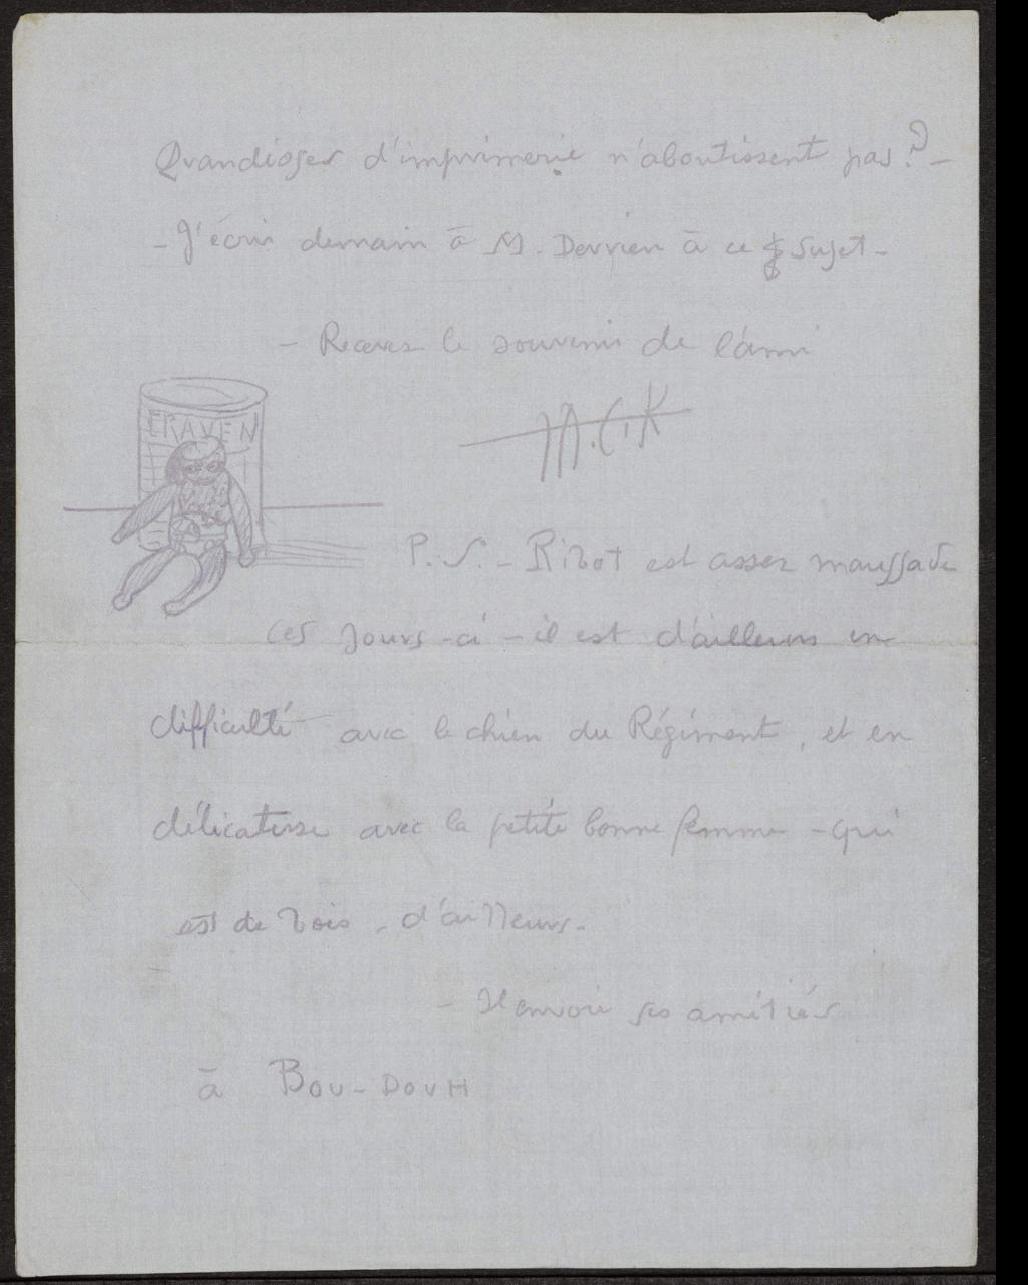 d'imprimerie n'aboutissent pas ? -
- J'écris demain à M. Derrien à ce sujet -
- Recevez le souvenir de l'ami
CRAVEN
P.S. - Ribot est assez maussade
ces jours-ci - il est d'ailleurs en
difficulté avec le chien du Régiment, et en
délicatesse avec la petite bonne femme - qui
est de bois, d'ailleurs.
- Il envoie ses amitiés
à BOU-DOUH